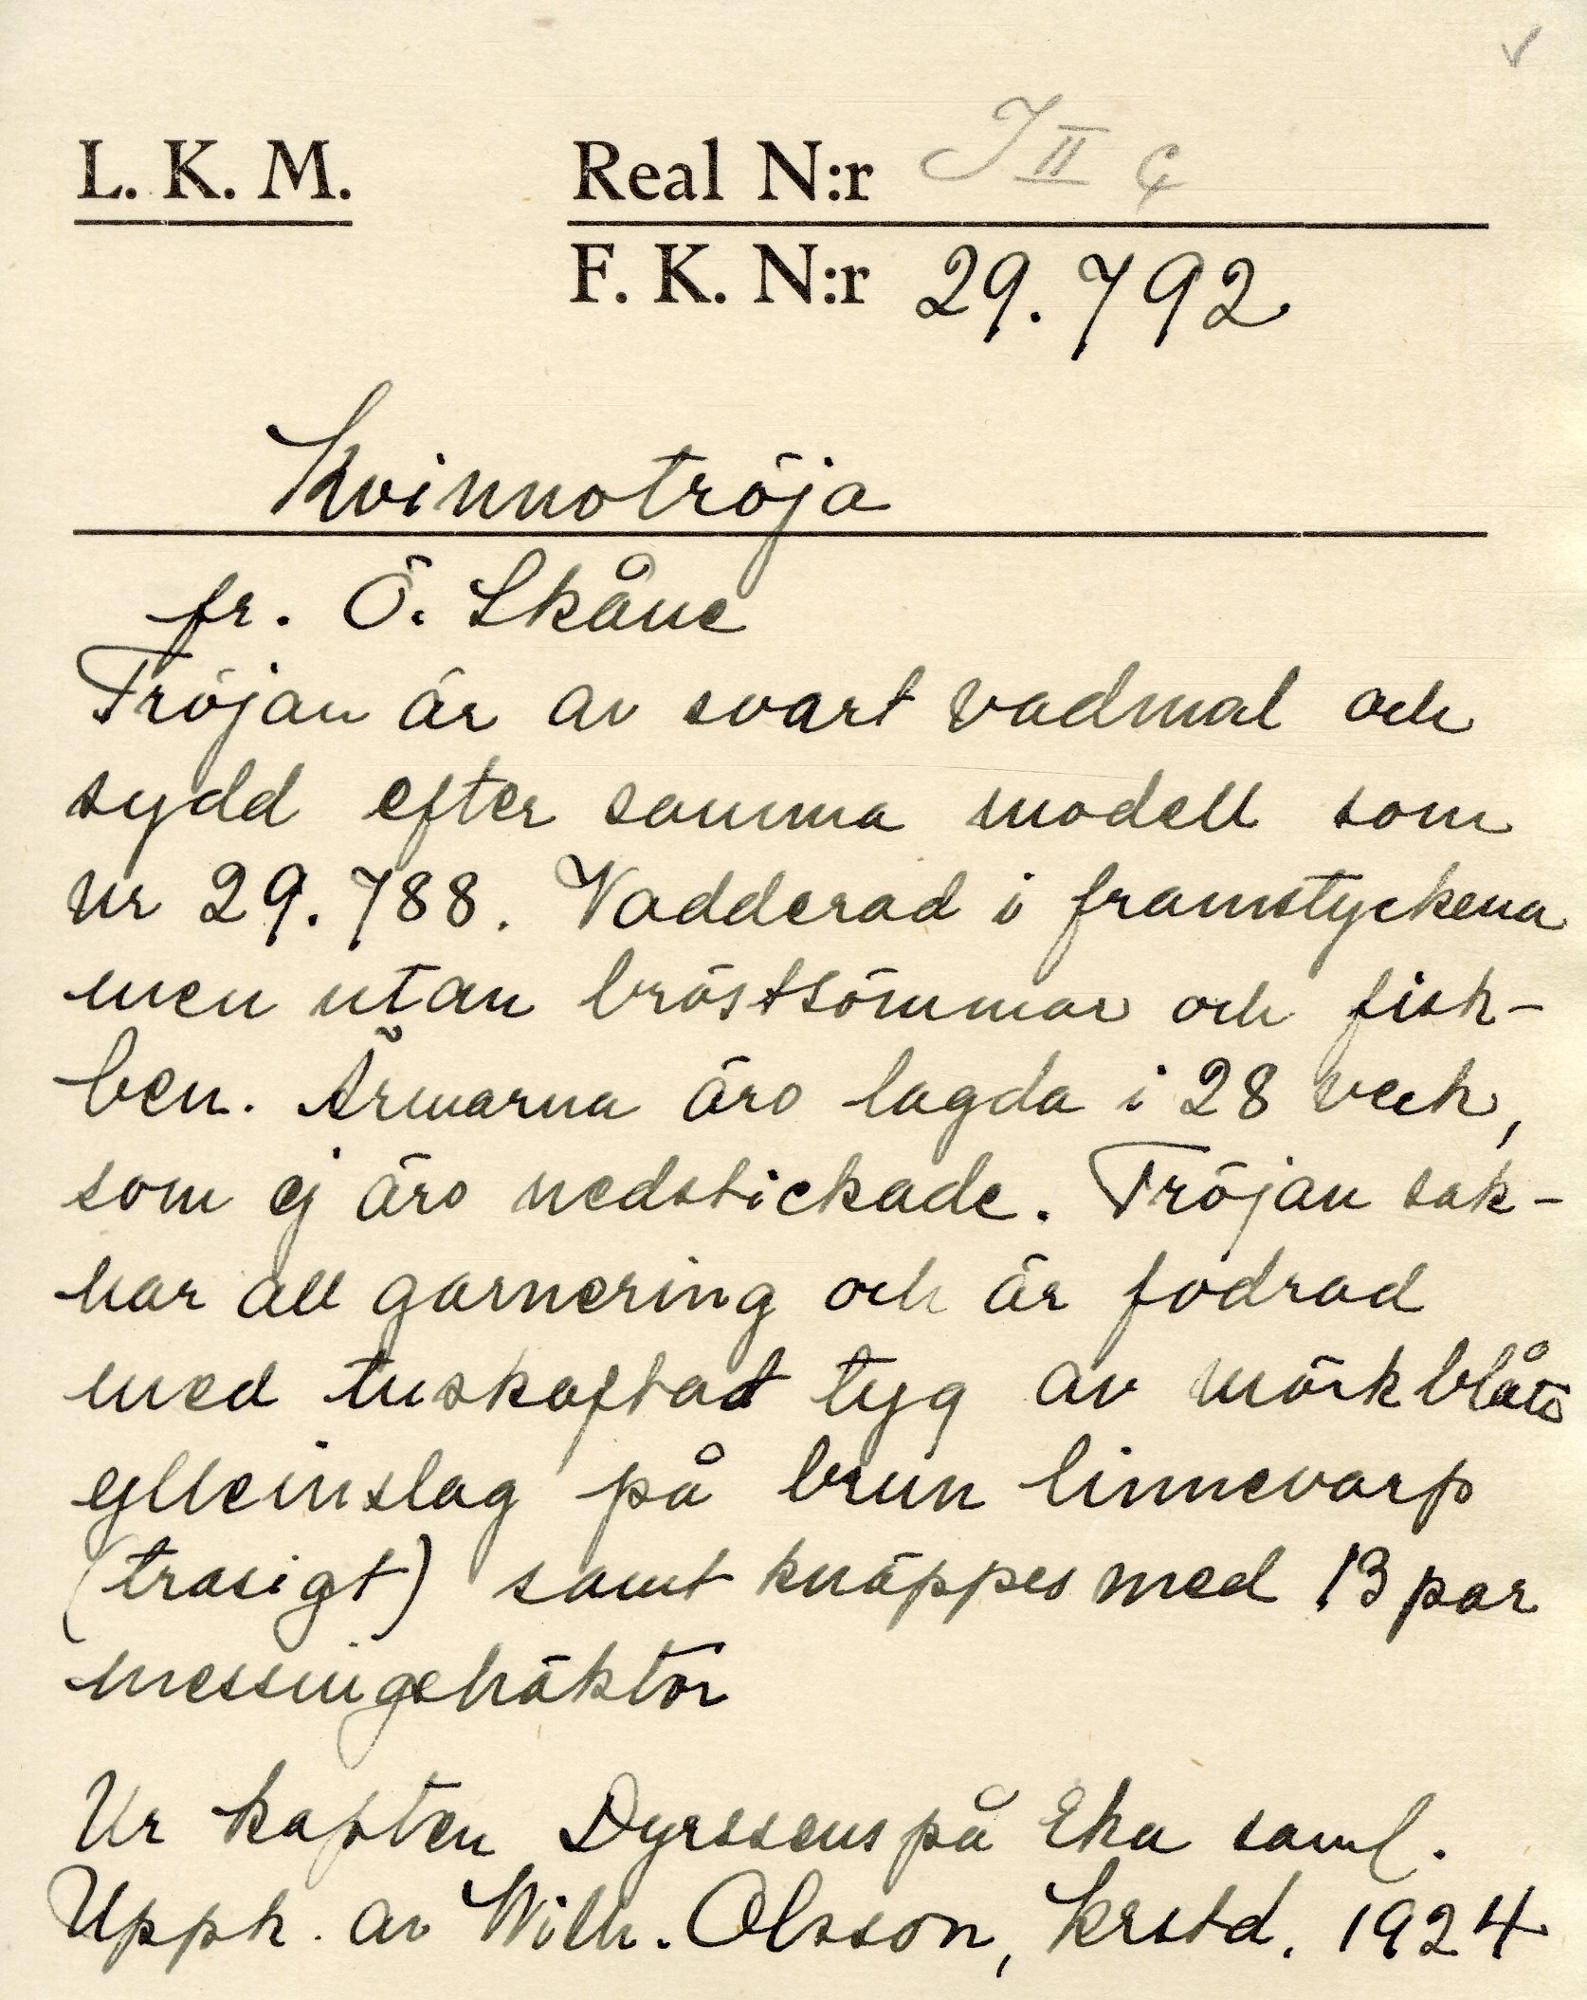 L. K. M.
Real N:r J II
F. K. N:r 29.792
Kvinnotröja
fr. Ö. Skåne
Tröjan är av svart vadmal och
sydd efter samma modell som
nr 29.788. Vadderad i framstyckena
men utan bröstsömmar och fisk-
ben. Ärmarna äro lagda i 28 veck,
som ej äro nedstickade. Tröjan sak-
nar all garnering och är fodrad
med tuskaftat tyg av mörkblått
ylleinslag på brun linnevarp
(trasigt) samt knäppes med 13 par
messingshäktor
Ur kapten Dyrssens på Eka saml.
Upph. av Wilh. Olsson, Krstd. 1924